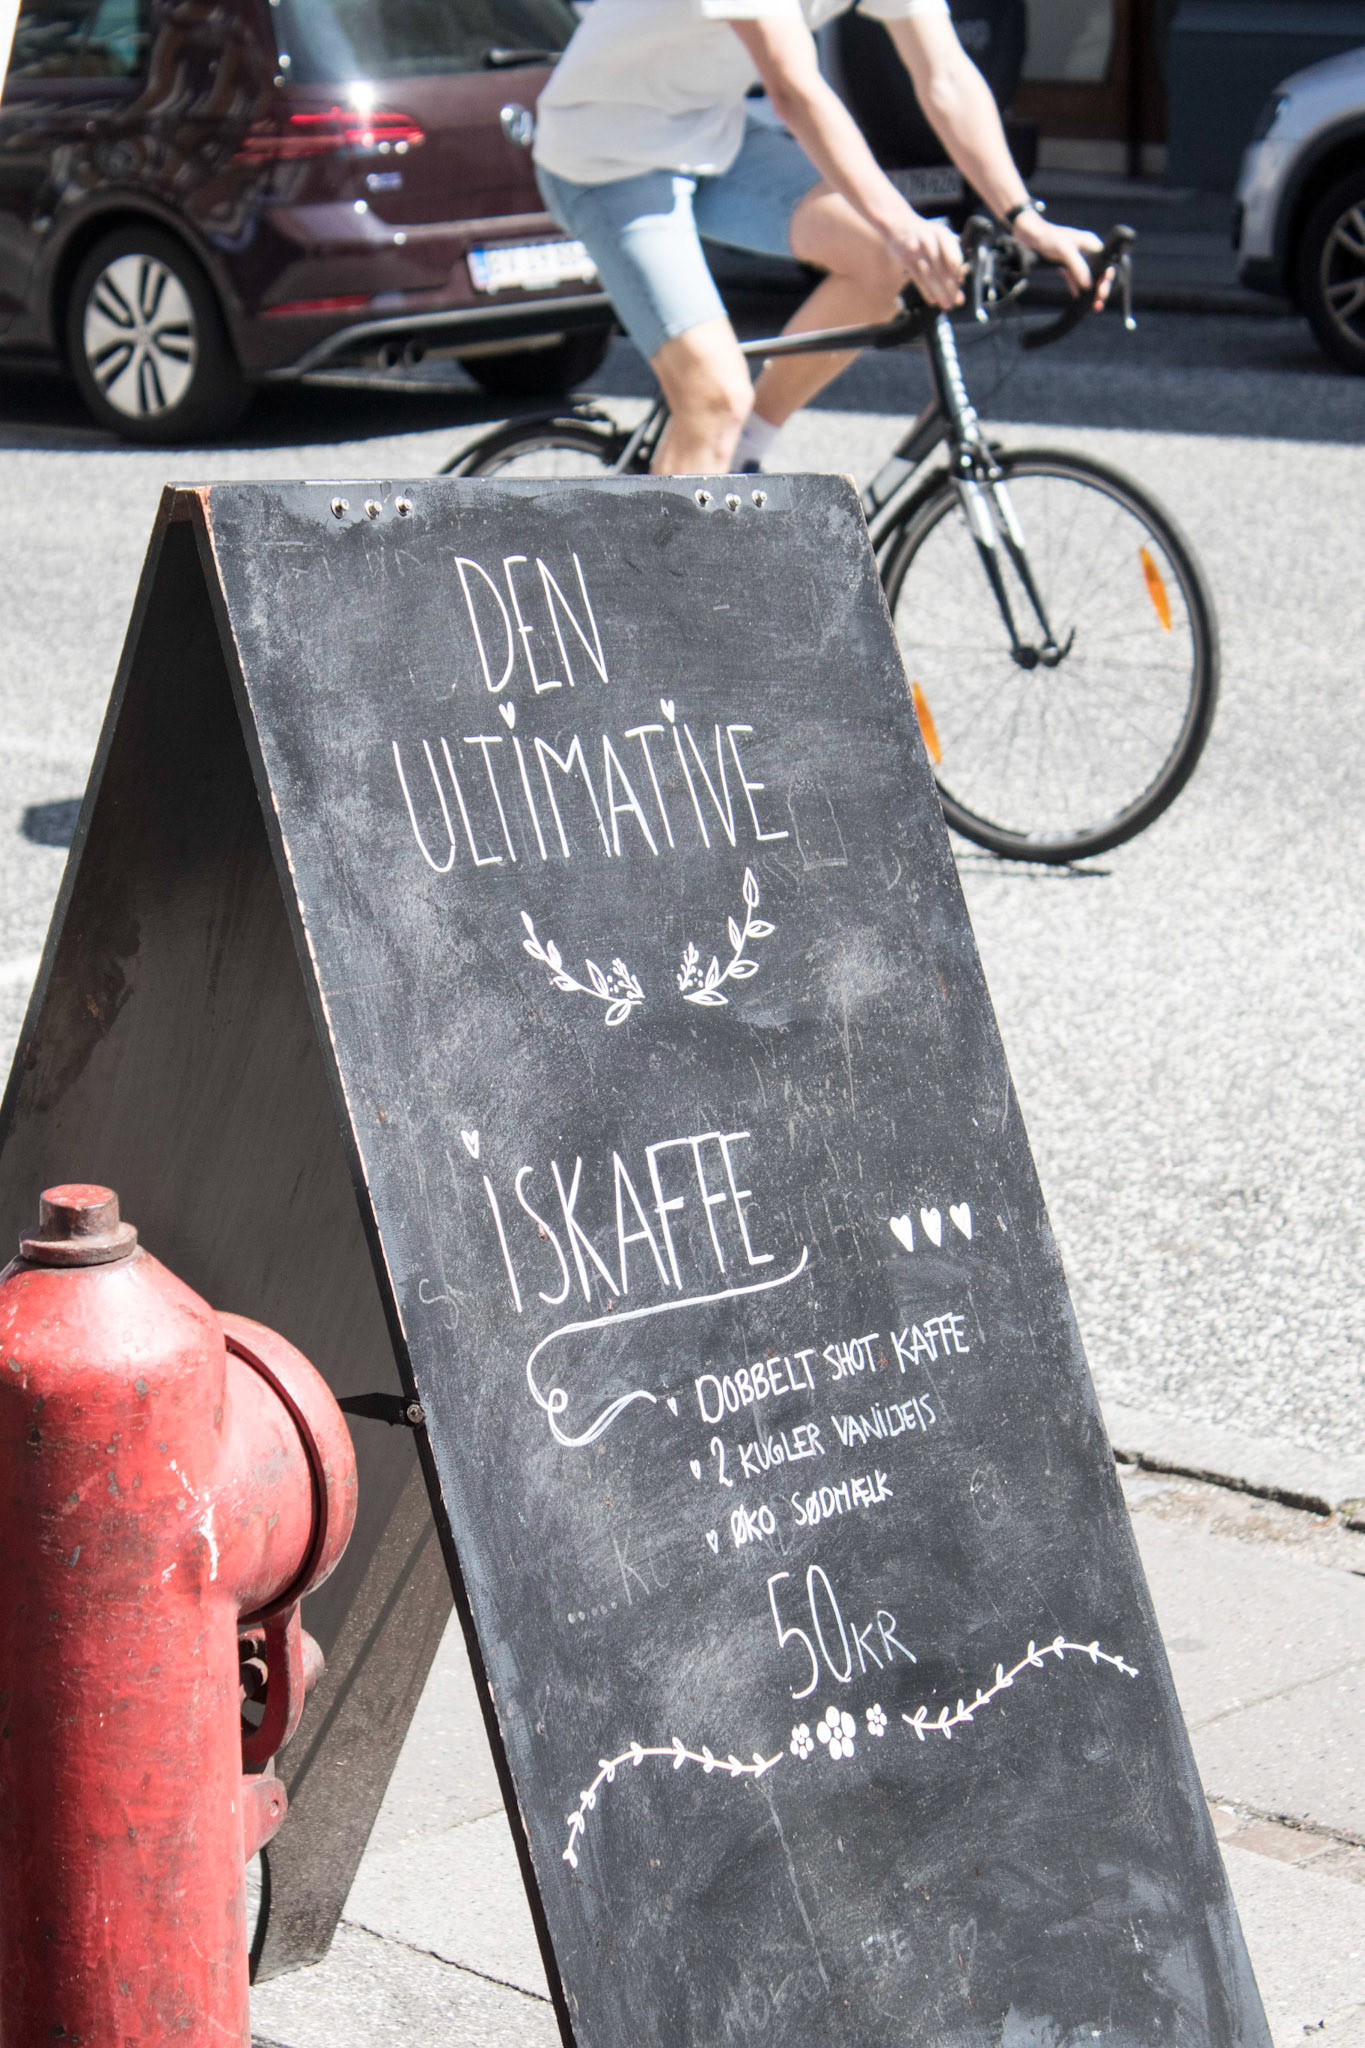 DEN
ULTIMATIVE
ISKAFFE
DOBBELT SHOT KAFFE
2 KUGLER VANILJEIS
ØKO SØDMÆLK
50KR